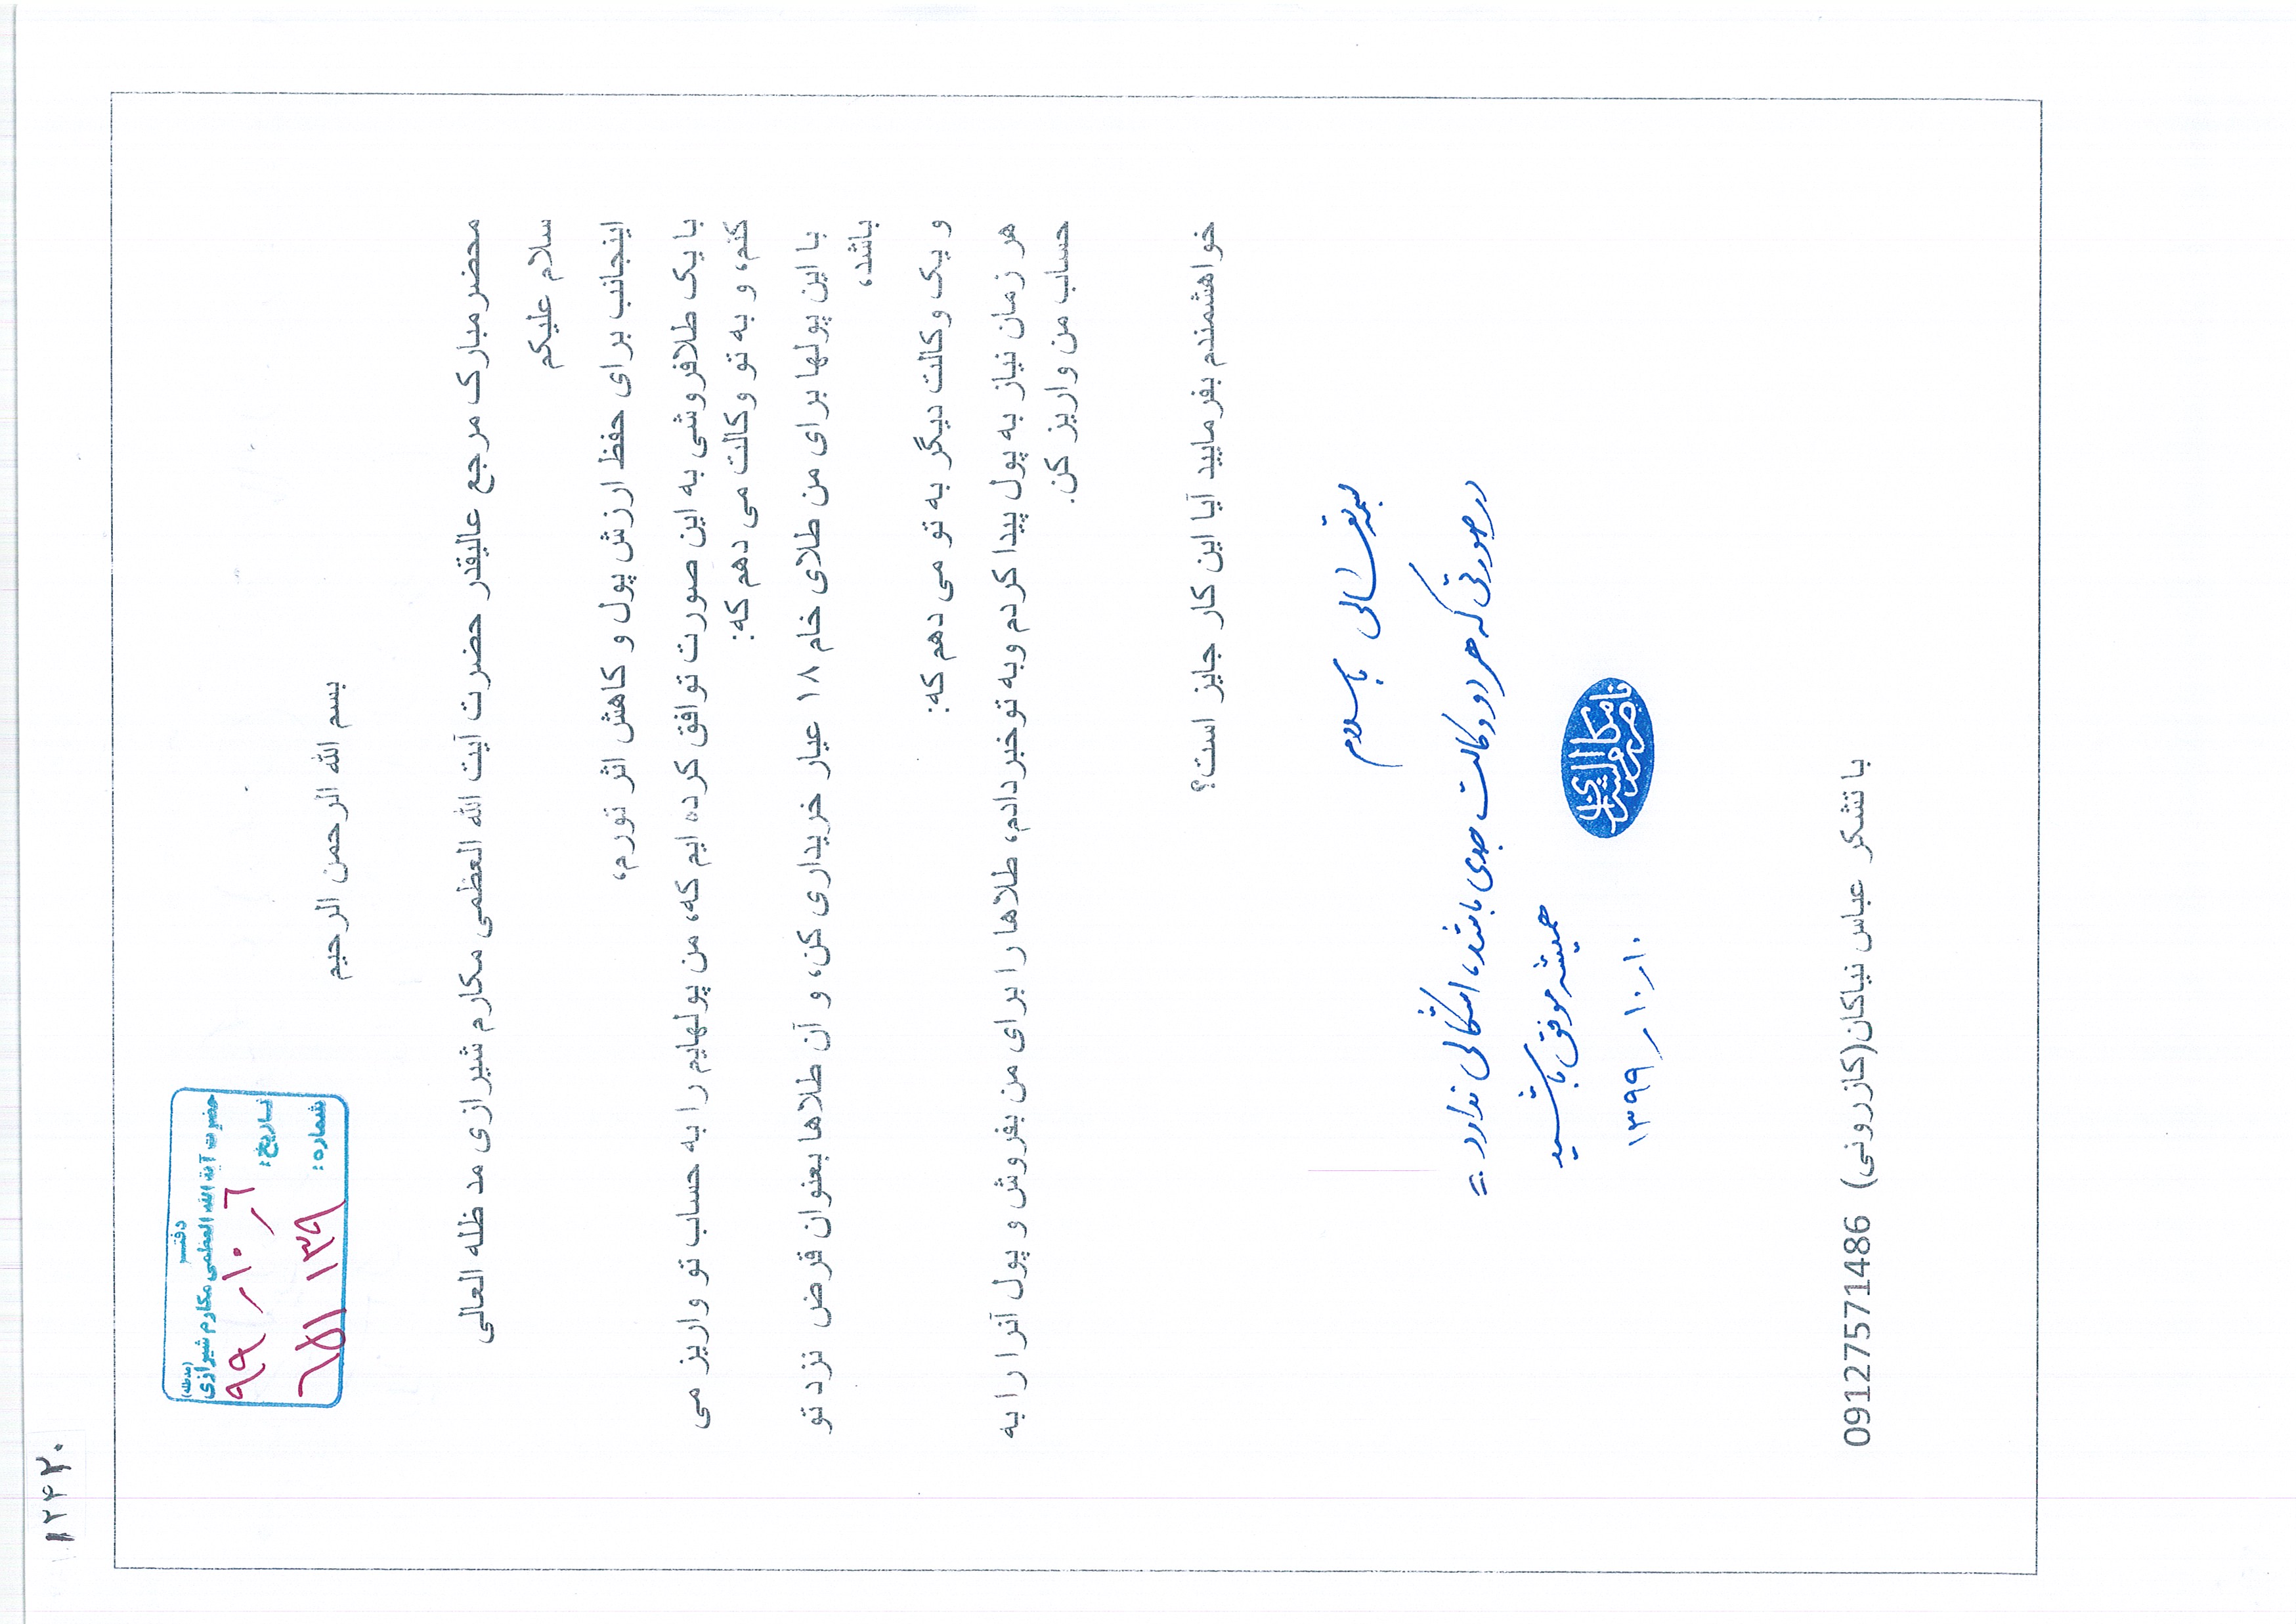 ۱۲۴۲۰
دفتر
حضرت آیة الله العظمی مکارم شیرازی (مدظله)
تاریخ: ۹۹/۱۰/۶
شماره:
بسم الله الرحمن الرحیم
محضر مبارک مرجع عالیقدر حضرت آیت الله العظمی مکارم شیرازی مد ظله العالی
سلام علیکم
اینجانب برای حفظ ارزش پول و کاهش اثر تورم،
با یک طلافروشی به این صورت توافق کرده ایم که، من پولهایم را به حساب تو واریز می
کنم، و به تو وکالت می دهم که:
با این پولها برای من طلای خام ۱۸ عیار خریداری کن، و آن طلاها بعنوان قرض نزد تو
باشد،
و یک وکالت دیگر به تو می دهم که:
هر زمان نیاز به پول پیدا کردم وبه تو خبر دادم، طلاها را برای من بفروش و پول آنرا را به
حساب من واریز کن.
خواهشمندم بفرمایید آیا این کار جایز است؟
بسمه تعالی باسلام
در صورتی که هر دو وکالت جدی باشد، اشکالی ندارد.
همیشه موفق باشید
۱۳۹۹/۱۰/۱۰
ناصر مکارم شیرازی
با تشکر عباس نیاکان(کازرونی) 09127571486